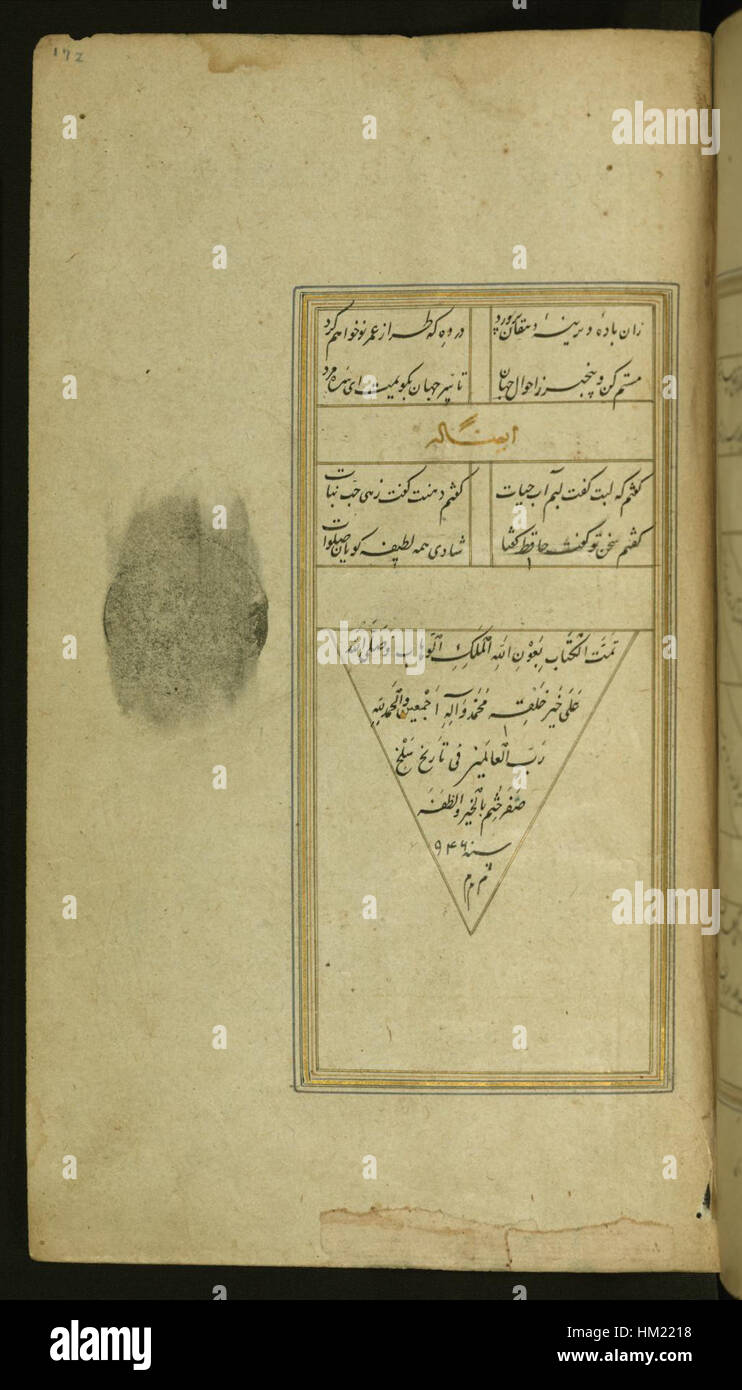 ۱۷۲
زان باده دیرینه دهقان پرورد
در ده که طراز عمر نو خواهم کرد
مستم کن و بیخبر ز احوال جهان
تا سر جهان بگویمت ای سره مرد
ایضاً له
گفتم که لبت گفت لبم آب حیات
گفتم دهنت گفت زهی حب نبات
گفتم سخن تو گفت حافظ گفتا
شادی همه لطیفه گویان صلوات
تَمَّت الکتاب بِعَوْنِ اللهِ المَلِکِ الوهاب وَصَلَّی الله
عَلی خَیرِ خَلْقِه مُحَمَّد وَآلِهِ اَجْمَعین وَالحَمدُ لِلّهِ
رَبِّ العالَمین فی تاریخ سَلْخِ
صَفَر خُتِمَ بالخَیر وَالظَفَر
سنه ۹۴۶
م م م
a
alamy
a
alamy
alamy
HM2218
www.alamy.com